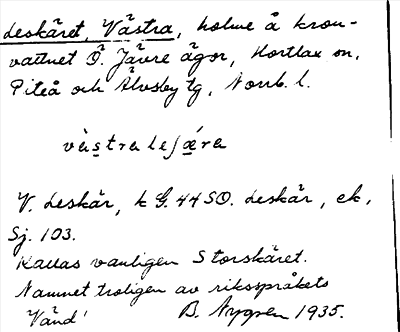 Leskäret, Västra, holme å kron-
vattnet Ö. Jävre ägor, Hortlax sn,
Piteå och Älvsby tg, Norrb. l.
västralesʃæ´ra
V. Leskär, k G. 44 SO. Leskär, ek,
Sj. 103.
Kallas vanligen Storskäret.
Namnet troligen av riksspråkets
'Vänd' B. Nygren 1935.